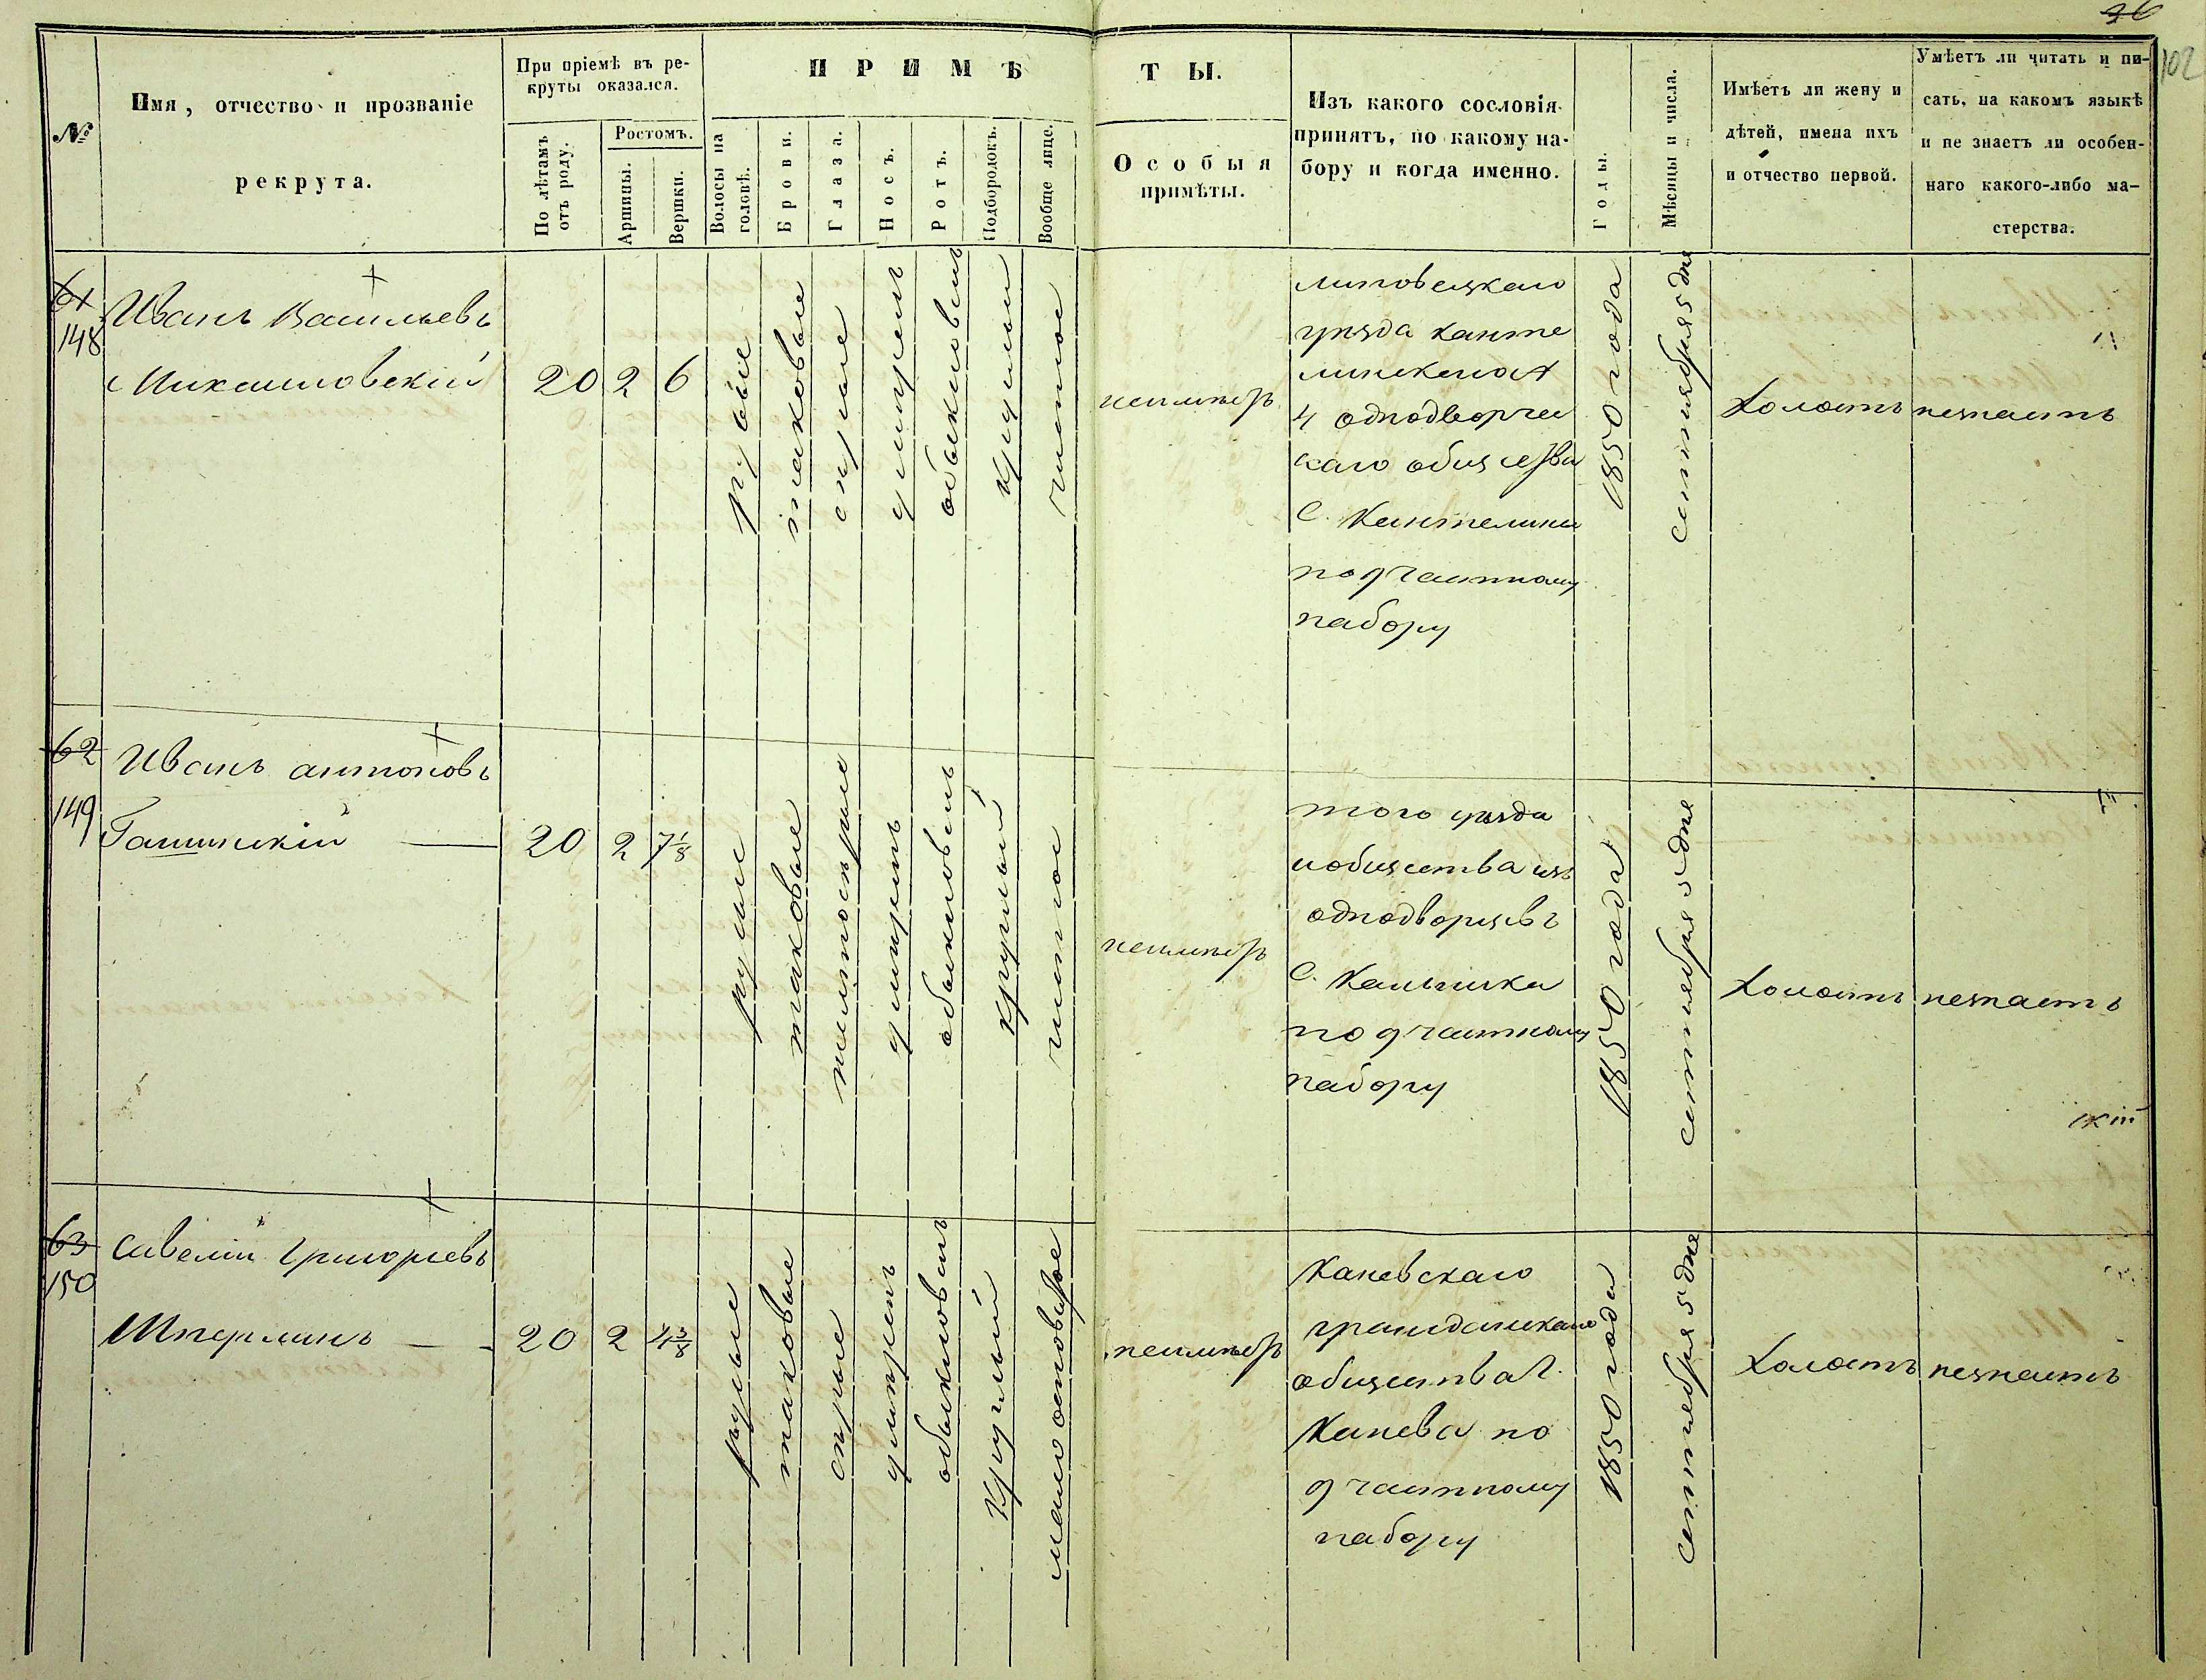 36
102
№
Имя, отчество и прозваніе
рекрута.
При пріемѣ въ ре-
круты оказался.
По лѣтамъ
отъ роду.
Ростомъ.
Аршины.
Вершки.
ПРИМѢ
ТЫ.
Волосы на
головѣ.
Брови.
Глаза.
Носъ.
Ротъ.
Подбородокъ.
Вообще лице.
Особыя
примѣты.
Изъ какого сословія
принятъ, по какому на-
бору и когда именно.
Годы.
Мѣсяцы и числа.
Имѣетъ ли жену и
дѣтей, имена ихъ
и отчество первой.
Умѣетъ ли читать и пи-
сать, на какомъ языкѣ
и не знаетъ ли особен-
наго какого-либо ма-
стерства.
61
148
Иванъ Васильевъ
Михайловскій
20
2
6
русые
таковые
серые
умеренъ
обыкновенъ
круглый
чистое
неимѣетъ
липовецкаго
уезда канте
линскаго
4 однодворчес
каго общества
С. Кантелина
по 9 частному
набору
1850 года
сентиября 5 дня
Холостъ
незнаетъ
62
149
Иванъ антоновъ
20
2
7 1/8
русые
таковые
умеренъ
обыкновенъ
круглый
чистое
неимѣетъ
того уезда
иобщества изъ
однодворцевъ
С. Кальника
по 9 частному
набору
1850 года
сентиебря 5 дня
Холостъ
незнаетъ
63
150
Савелій Григорьевъ
20
2
4 3/8
русые
таковые
серые
умеренъ
обыкновенъ
круглый
неимѣетъ
Каневскаго
гражданскаго
общества Г.
Канева по
9 частному
набору
1850 года
сентиебря 5 дня
Холостъ
незнаетъ